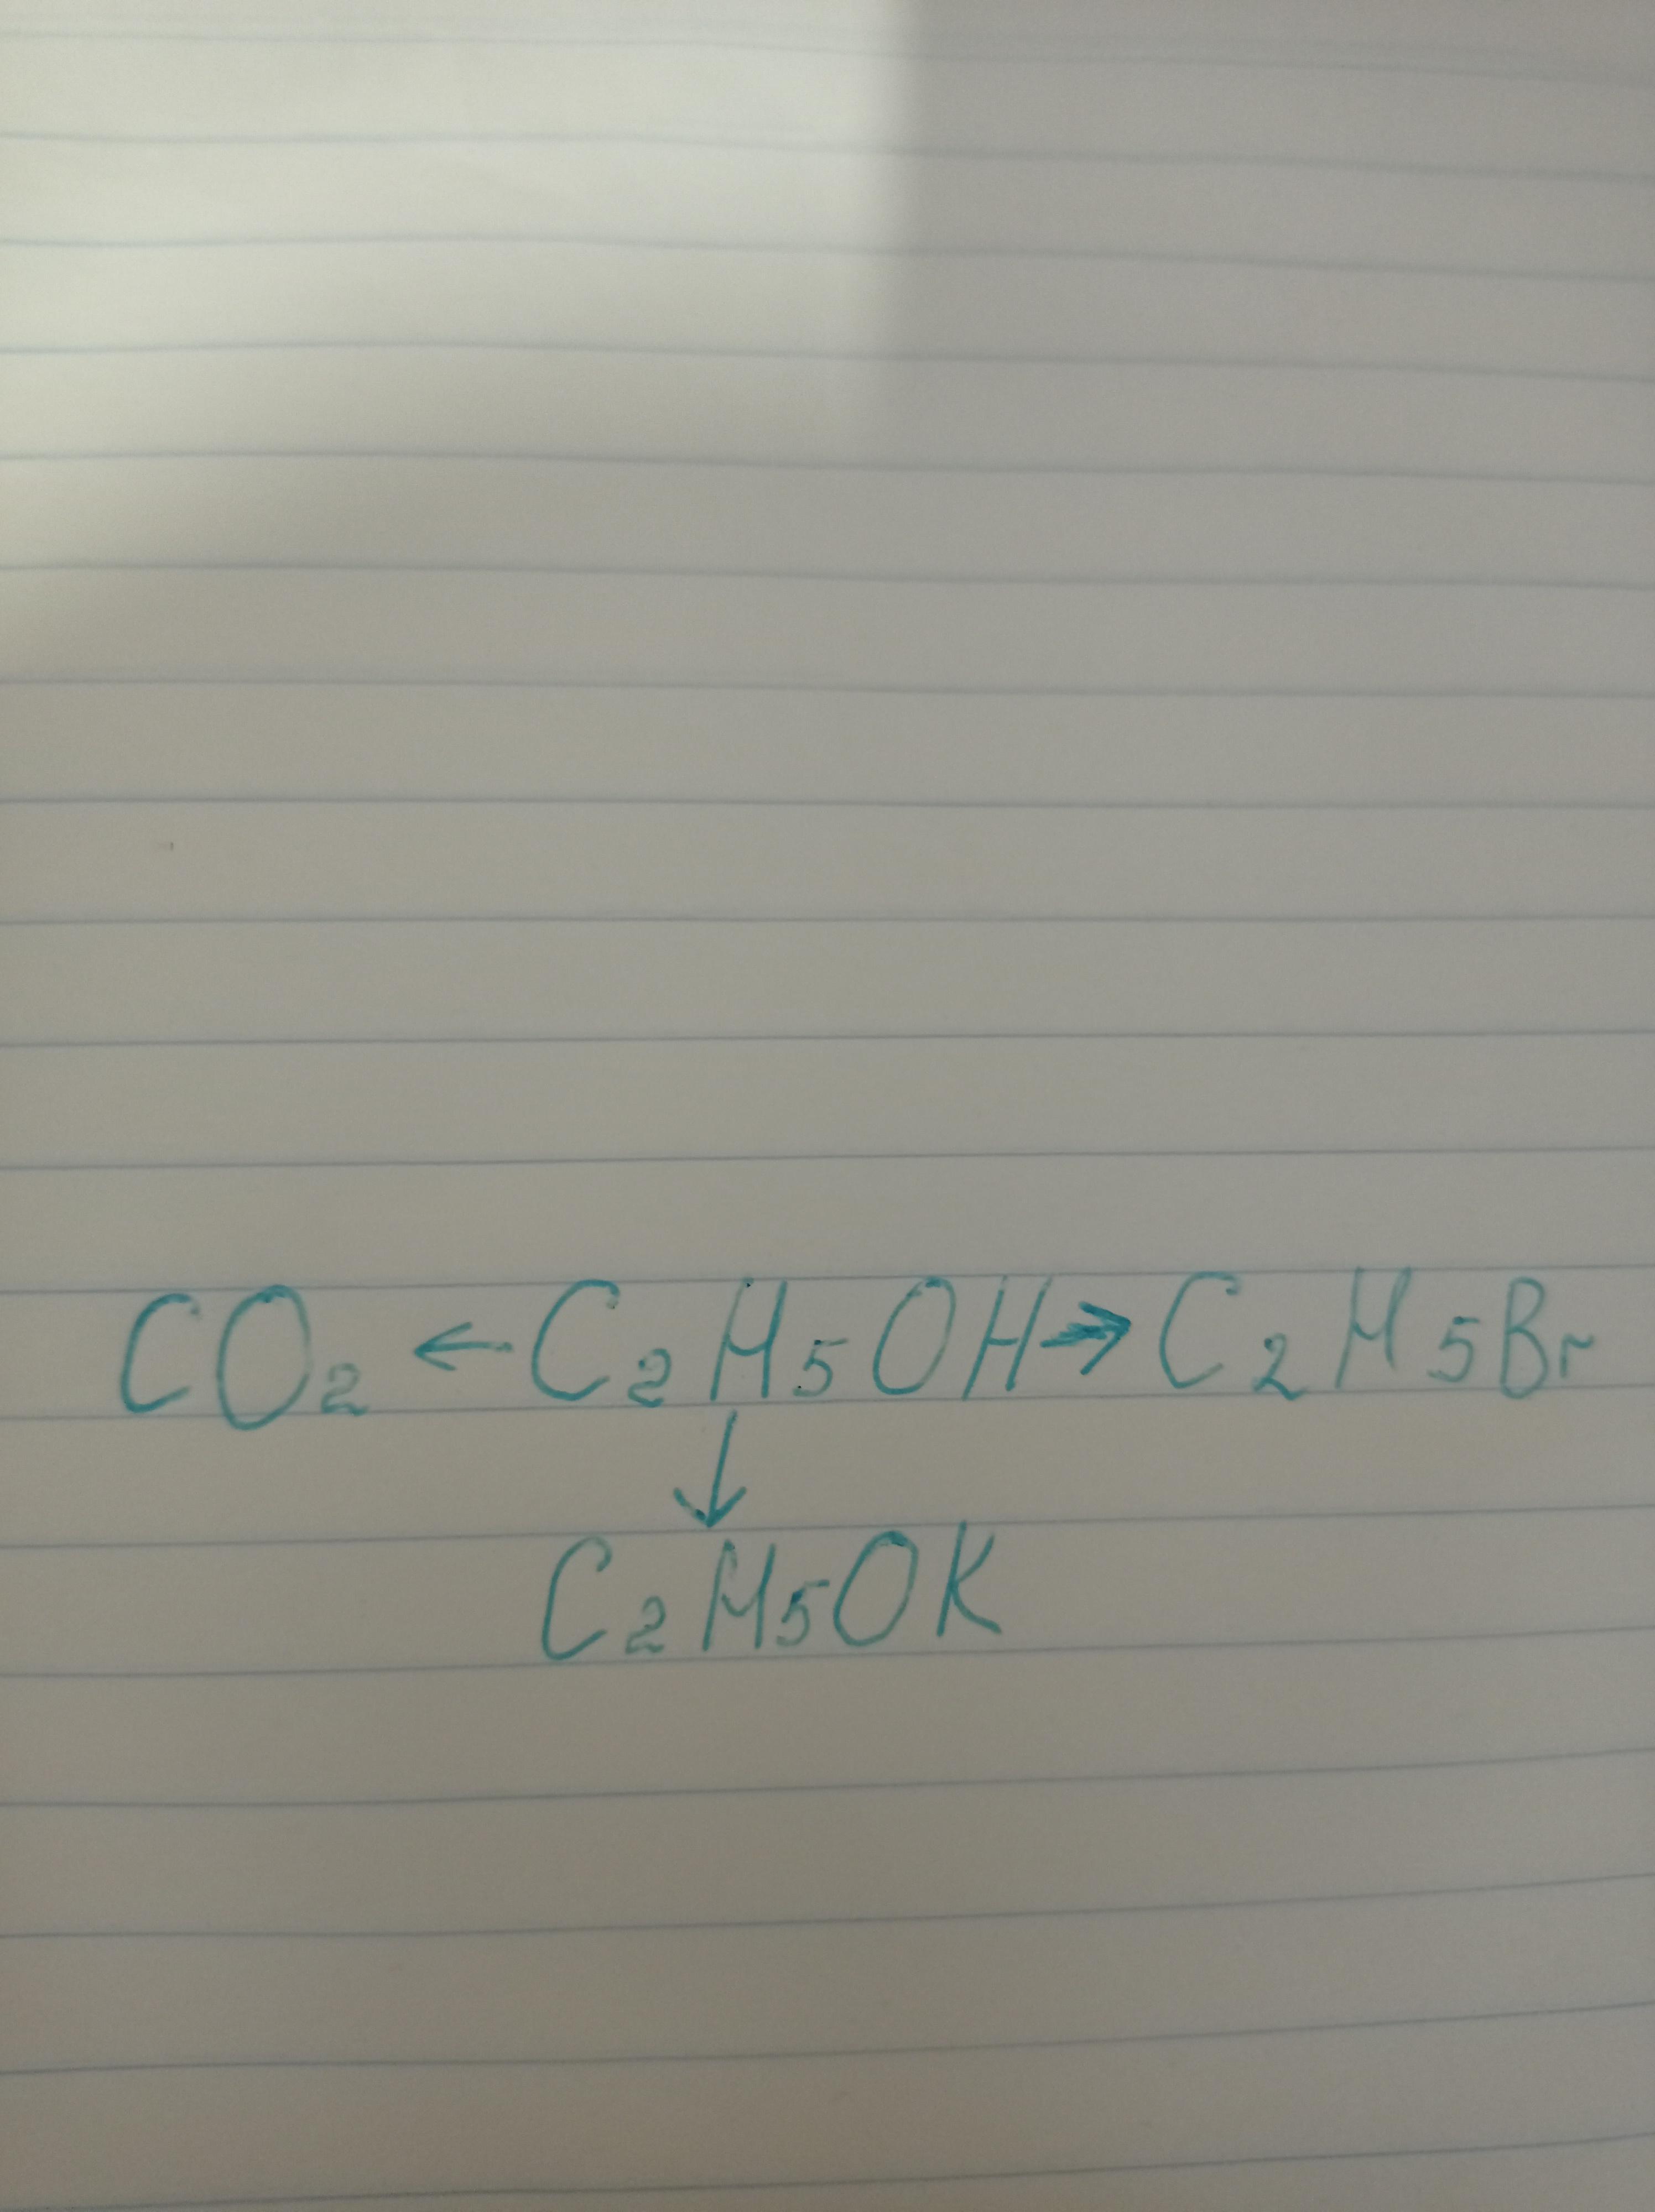 CO₂ ← C₂H₅OH → C₂H₅Br
↓
C₂H₅OK